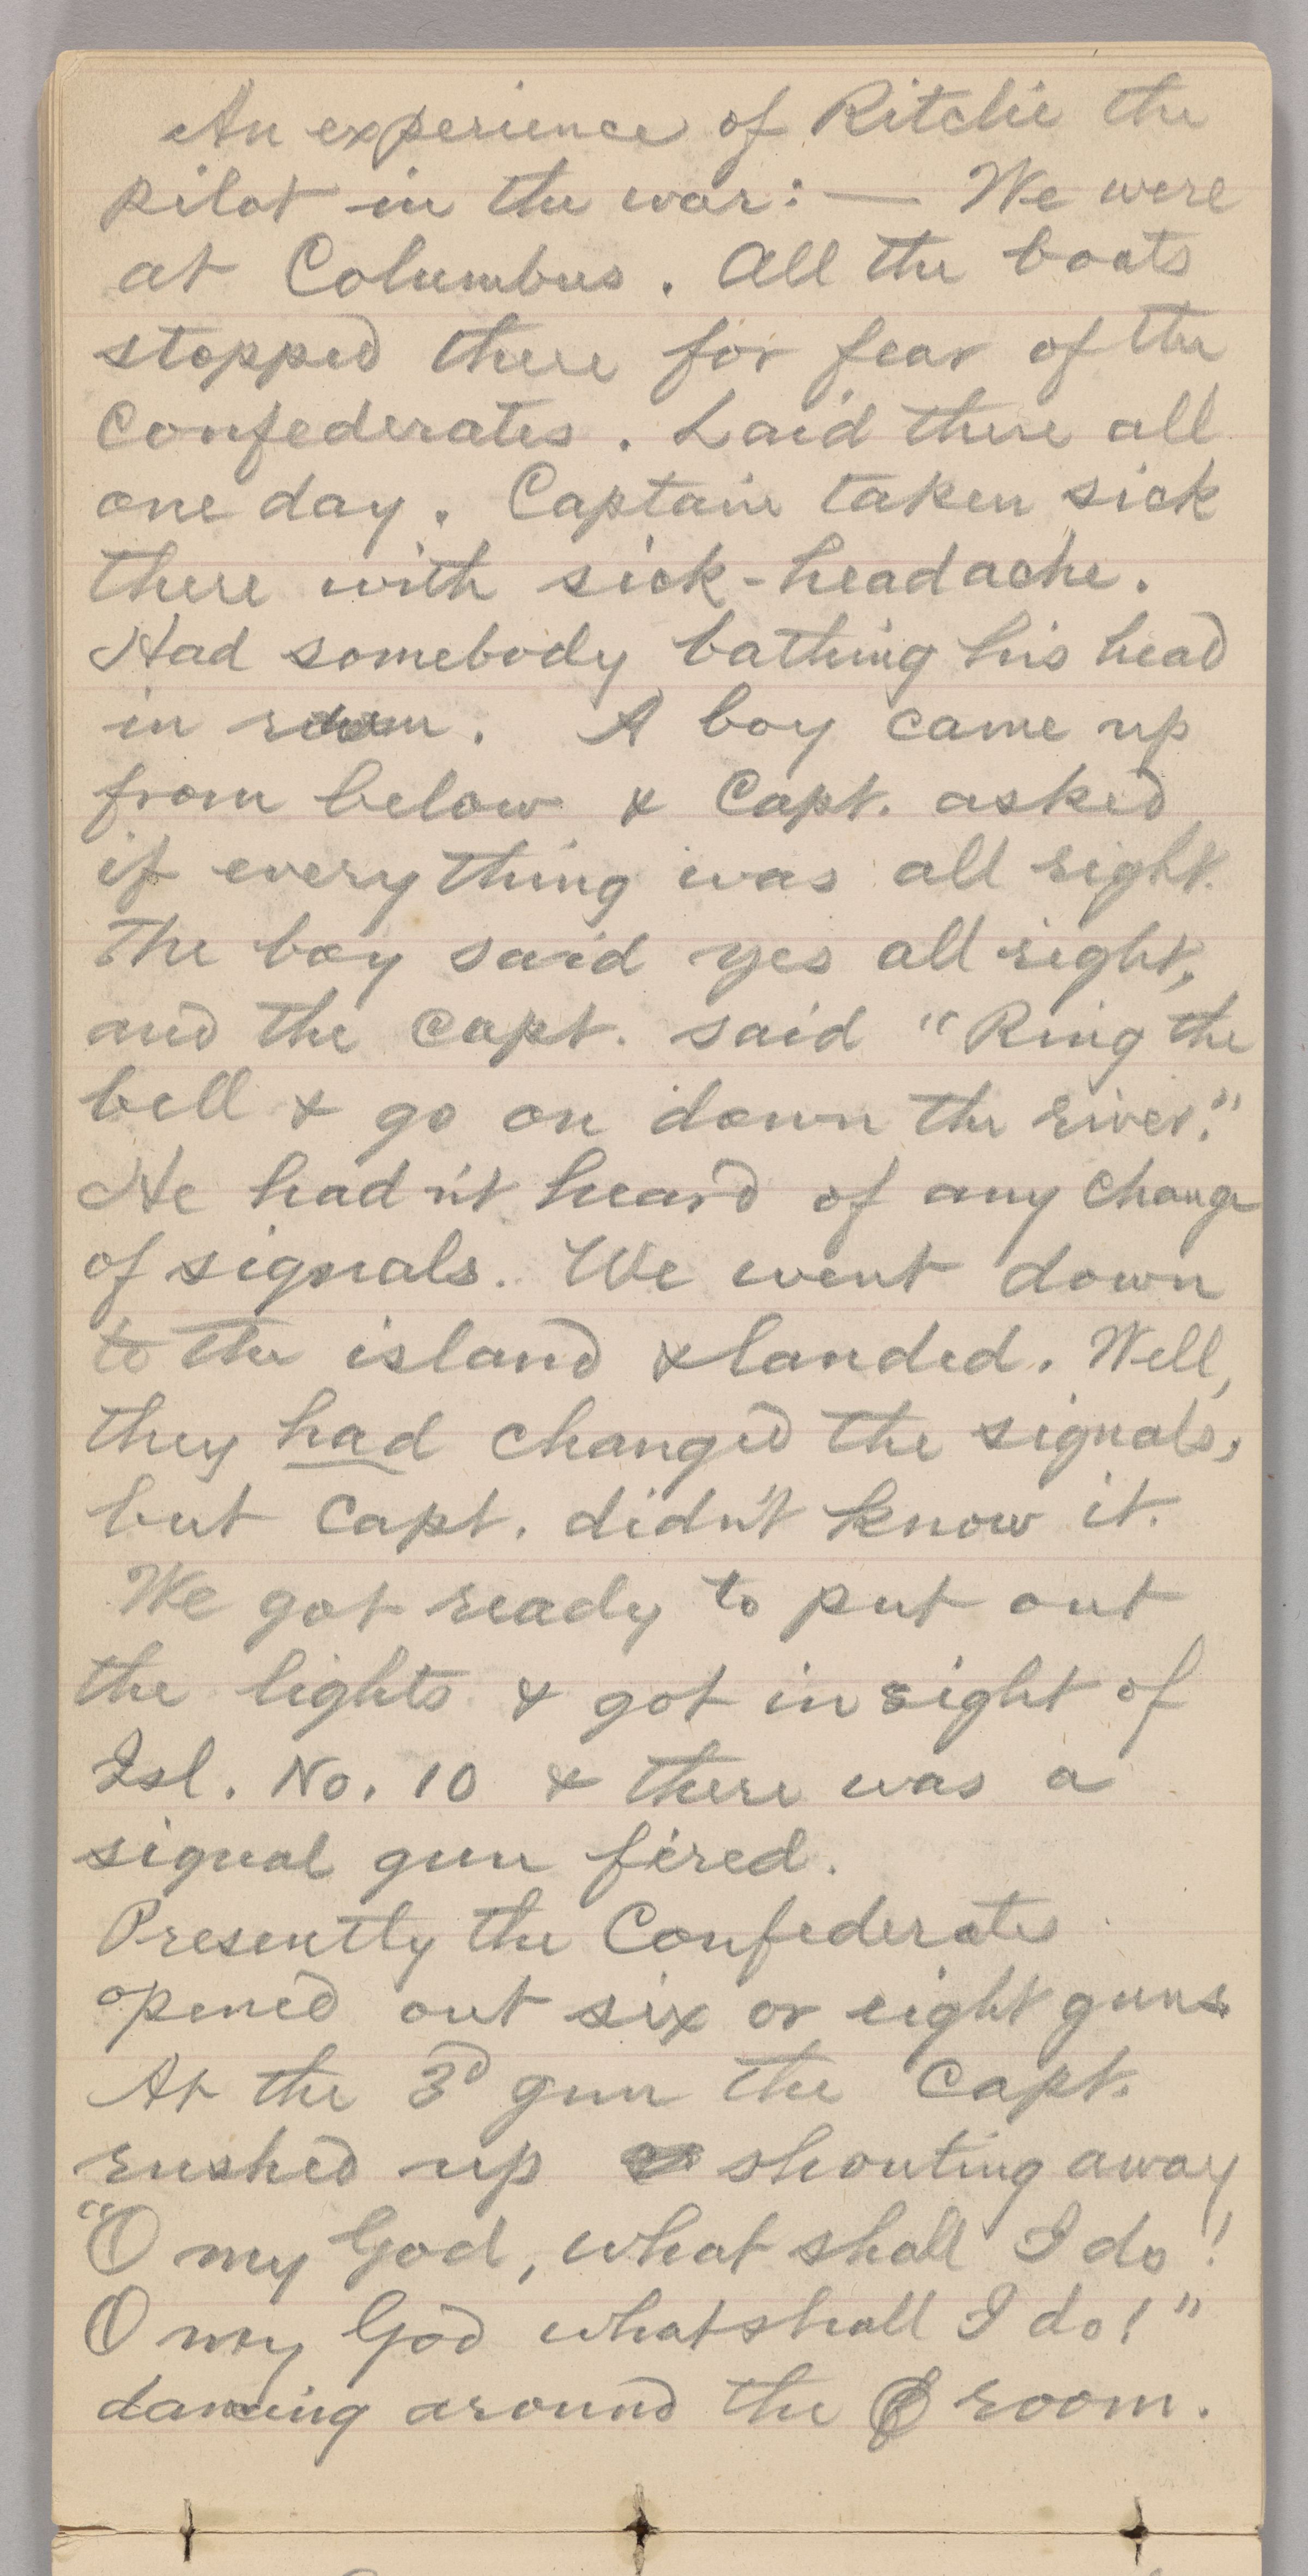 An experience of Ritchie the
pilot in the war:— We were
at Columbus. All the boats
stopped there for fear of the
Confederates. Laid there all
one day. Captain taken sick
there with sick-headache.
Had somebody bathing his head
in room. A boy came up
from below & Capt. asked
if everything was all right.
The boy said yes all right,
and the Capt. said "Ring the
bell & go on down the river."
He hadn't heard of any change
of signals. We went down
to the island & landed. Well,
they had changed the signals,
but Capt. didn't know it.
We got ready to put out
the lights & got in sight of
Isl. No. 10 & there was a
signal gun fired.
Presently the Confederates
opened out six or eight guns.
At the 3d gun the Capt.
rushed up shouting away
"O my God, what shall I do!
O my God what shall I do!"
dancing around the room.